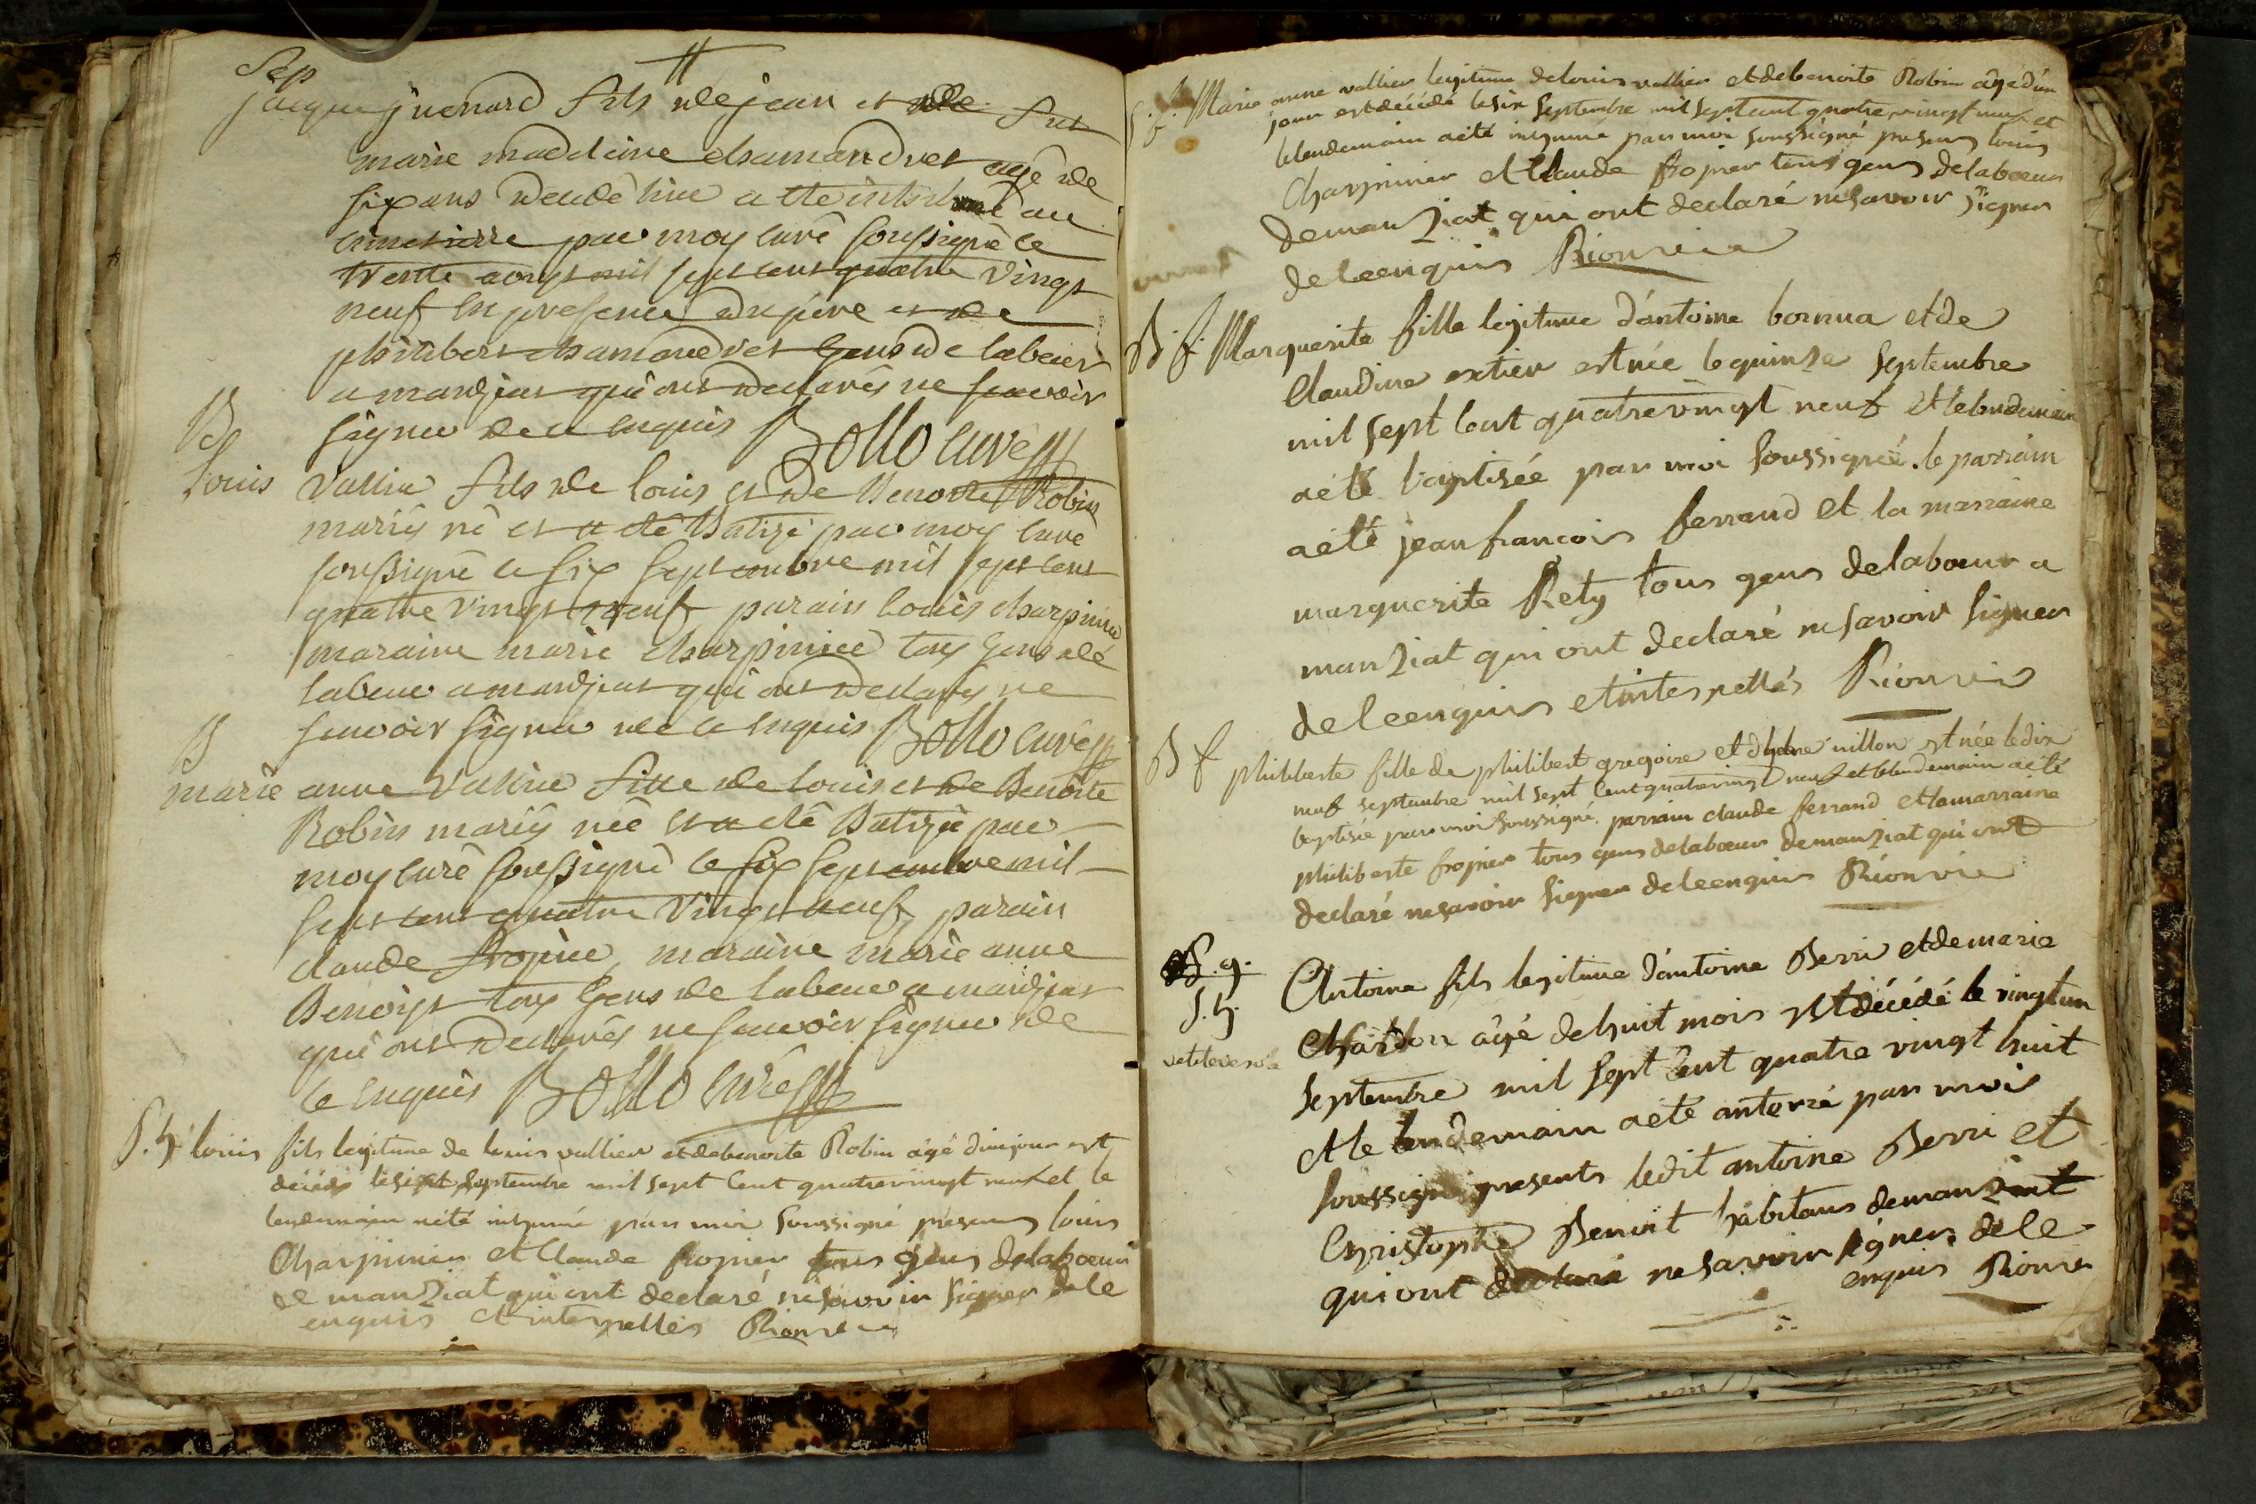 Sep
jacque juenard fils de jean et de
marie madelaine chamandret agé de
six ans decedé hier a ete inhumé au
cimetierre par moy curé soussigné le
trente aoust mil sept cent quatre vingt
neuf en presence du pere et de
philibert chamandret gens de labeur
a mandziat qui ont declarés ne scavoir
signer de ce enquis Bollo curé
B
Louis vallier fils de louis et de Benoite Robin
mariés né et a eté Batizé par moy curé
soussigné le six septembre mil sept cent
quatre vingt neuf parain louis charpinier
maraine marie charpinier tous gens de
labeur a mandziat qui ont declarés ne
scavoir signer de ce enquis Bollo curé
B
marie anne vallier fille de louis et de Benoite
Robin mariés née et a eté Batizée par
moy curé soussigné le six septembre mil
sept cent quatre vingt neuf parain
claude fropier maraine marie anne
Benoist tous gens de labeur a mandziat
qui ont declarés ne scavoir signer de
ce enquis Bollo curé
S. h. louis fils legitime de louis vallier et de benoite Robin agé d'un jour est
décédé le sept septembre mil sept cent quatrevingt neuf et le
lendemain a été inhumé par moi soussigné présens louis
Charpinier et Claude fropier tous gens de labœur
de manziat qui ont declaré ne savoir signer de ce
enquis et interpellés
S. f. Marie anne vallier legitime de louis vallier et de benoite Robin agé d'un
jour est décédé le six septembre mil sept cent quatre vingt neuf et
le lendemain a été inhumé par moi soussigné presens louis
Charpinier et Claude fropier tous gens de labœur
de manziat qui ont declaré ne savoir signer
de ce enquis
B. f. Marguerite fille legitime d'antoine bornua et de
Claudine extier est née le quinze septembre
mil sept cent quatre vingt neuf et le lendemain
a été baptisée par moi soussigné. le parrain
a été jean francois ferrand et la marraine
marguerite Rety tous gens de labœur a
manziat qui ont declaré ne savoir signer
de ce enquis et interpellés
B f philiberte fille de philibert gregoire et d'helene nillon est née le dix
neuf septembre mil sept cent quatrevingt neuf et le lendemain a été
baptisée par moi soussigné. parrain claude ferrand et la marraine
philiberte fropier tous gens de labœur de manziat qui ont
declaré ne savoir signer de ce enquis
S. h.
Antoine fils legitime d'antoine Berri et de marie
Chardon âgé de huit mois est décédé le vingt un
septembre mil sept cent quatre vingt huit
et le lendemain a été enterré par moi
soussigné presents ledit antoine Berri et
Christophe Benoit habitans de manziat
qui ont declaré ne savoir signer de ce
enquis